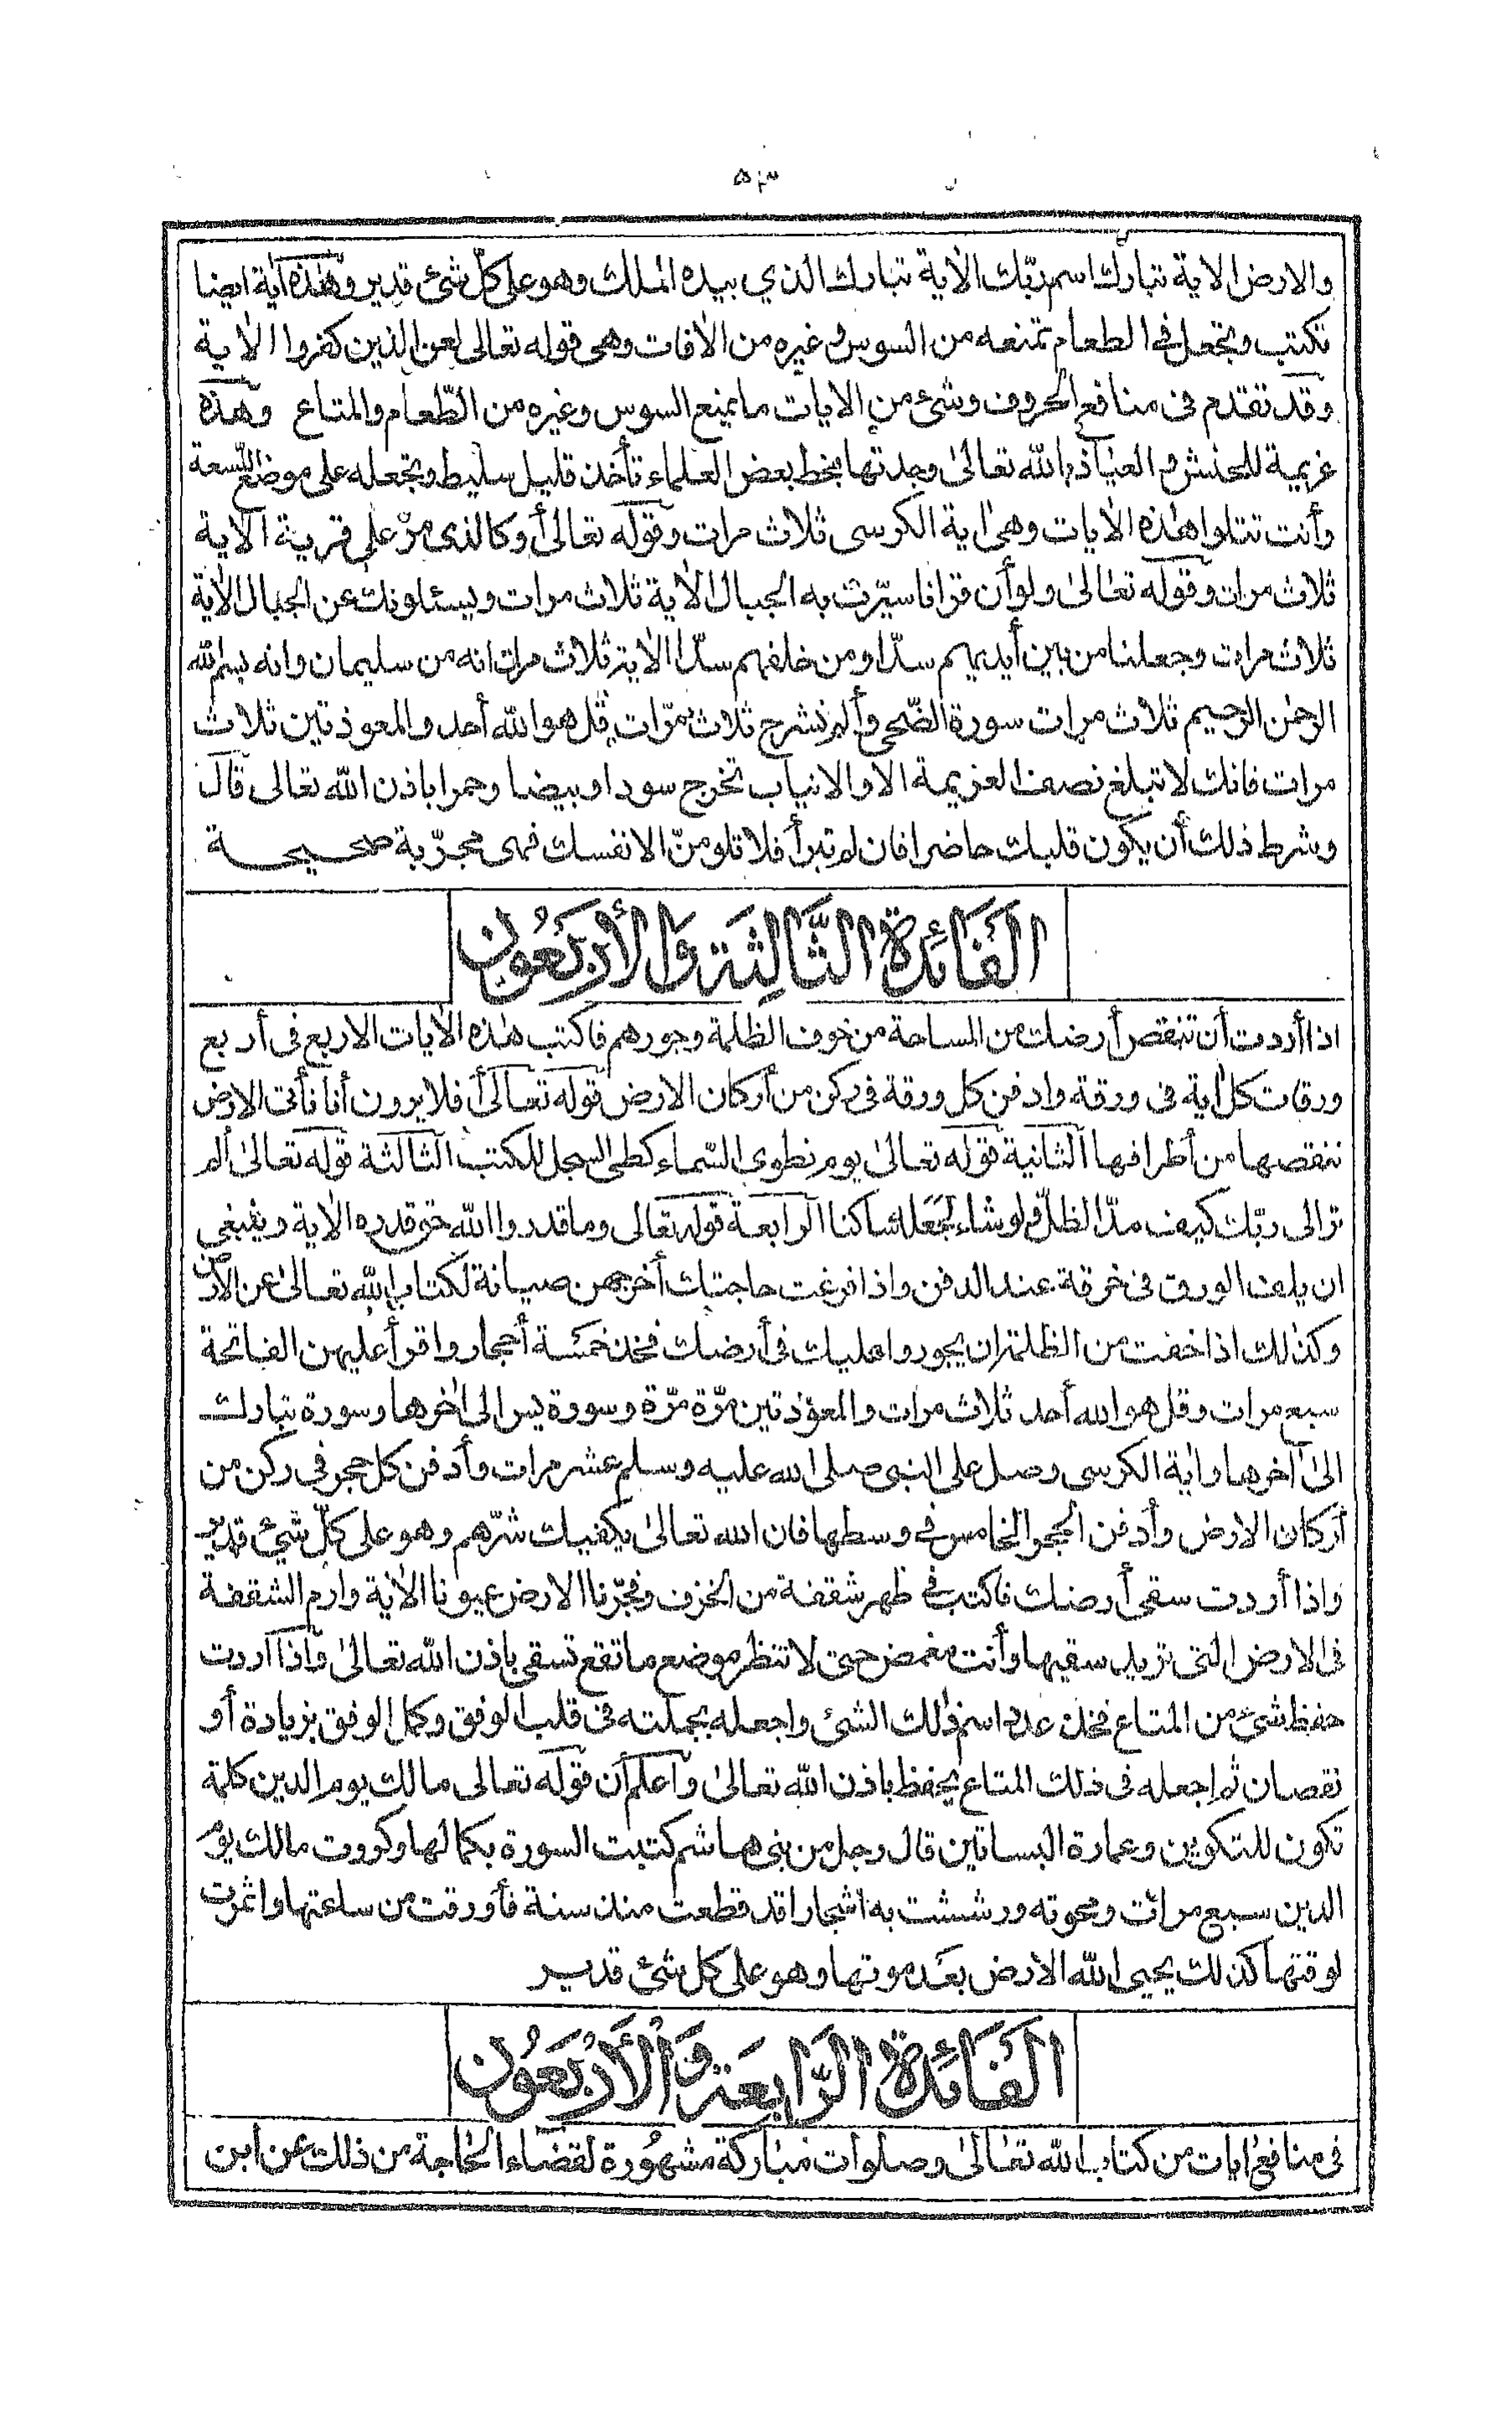 ٥٣
والارض الاية تبارك اسم ربّك الاية تبارك الذي بيده الملك وهو على كلّ شئ قدير وهٰذه اٰية ايضا
تكتب وتجعل في الطعام تمنعه من السوس وغيره من الاٰفات وهى قوله تعالى لعن الذين كفروا الاٰية
وقد تقدم فى منافع الحروف وشئ من الايات ما يمنع السوس وغيره من الطّعام والمتاع وهذه
عزيمة للحنش والعياذ بالله تعالىٰ وجدتها بخط بعض العلماء تأخذ قليل سليط وتجعله على موضع اللسعة
وأنت تتلوا هٰذه الاٰيات وهى اٰية الكرسى ثلاث مرات وقوله تعالىٰ أو كالذى مرّ على قرية الاٰية
ثلاث مرات وقوله تعالىٰ ولو أن قراٰنا سيّرت به الجبال الاٰية ثلاث مرات ويسئلونك عن الجبال الاٰية
ثلاث مرات وجعلنا من بين أيديهم سدّا ومن خلفهم سدّا الاٰية ثلاث مرات انه من سليمان وانه بسم الله
الرحمٰن الرحيم ثلاث مرات سورة الضّحى وألم نشرح ثلاث مرّات قل هو الله أحد والمعوذتين ثلاث
مرات فانك لا تبلغ نصف العزيمة الا والانياب تخرج سودا وبيضا وحمرا باذن الله تعالى قال
وشرط ذلك أن يكون قلبك حاضرا فان لم تبرأ فلا تلومنّ الا نفسك فهى مجرّبة صحيحة
الفَائدة الثَّالِثَة وَالأربَعُون
اذا أردت أن تنقص أرضك من المساحة من خوف الظلمة وجورهم فاكتب هٰذه الاٰيات الاربع فى أربع
ورقات كل اٰية فى ورقة وادفن كل ورقة فى ركن من أركان الارض قوله تعالىٰ أفلا يرون أنا نأتى الارض
ننقصها من أطرافها الثانية قوله تعالىٰ يوم نطوى السّماء كطى السجل للكتب الثالثة قوله تعالىٰ ألم
تر الى ربّك كيف مدّ الظلّ ولو شاء لجعله ساكنا الرابعة قوله تعالى وما قدروا الله حق قدره الاية وينبغى
ان يلف الورق فى خرقة عند الدفن واذا فرغت حاجتك أخرجهن صيانة لكتاب الله تعالىٰ عن الارض
وكذلك اذا خفت من الظلمة ان يجوروا عليك فى أرضك فخذ خمسة أحجار واقرأ عليهن الفاتحة
سبع مرات وقل هو الله أحد ثلاث مرات والمعوّذتين مرّة مرّة وسورة يس الى اٰخرها وسورة تبارك
الىٰ اٰخرها واٰية الكرسى وصل على النبى صلى الله عليه وسلم عشر مرات وأدفن كل حجر فى ركن من
أركان الارض وأدفن الحجر الخامس في وسطها فان الله تعالىٰ يكفيك شرّهم وهو على كلّ شئ قدير
واذا أردت سقى أرضك فاكتب في ظهر شقفة من الخزف وفجّرنا الارض عيونا الاٰية وارم الشقفة
فى الارض التى تريد سقيها وأنت مغمض حتى لا تنظر موضع ما تقع تسقى باذن الله تعالىٰ واذا اردت
حفظ شئ من المتاع فخذ عدد اسم ذٰلك الشئ واجعله بجملته فى قلب الوفق وكمل الوفق بزيادة أو
نقصان ثم اجعله فى ذلك المتاع يحفظ باذن الله تعالىٰ واعلم أن قوله تعالى مالك يوم الدين كلمة
تكون للتكوين وعمارة البساتين قال رجل من بنى هاشم كتبت السورة بكمالها وكررت مالك يوم
الدين سبع مرات ومحوته ورششت به أشجارا قد قطعت منذ سنة فأورقت من ساعتها واثمرت
لوقتها كذلك يحيى الله الارض بعد موتها وهو على كل شئ قدير
الفَائدة الرَّابِعَة وَالْأَرْبَعُون
فى منافع اٰيات من كتاب الله تعالىٰ وصلوات مباركة مشهورة لقضاء الحاجة من ذلك عن ابن